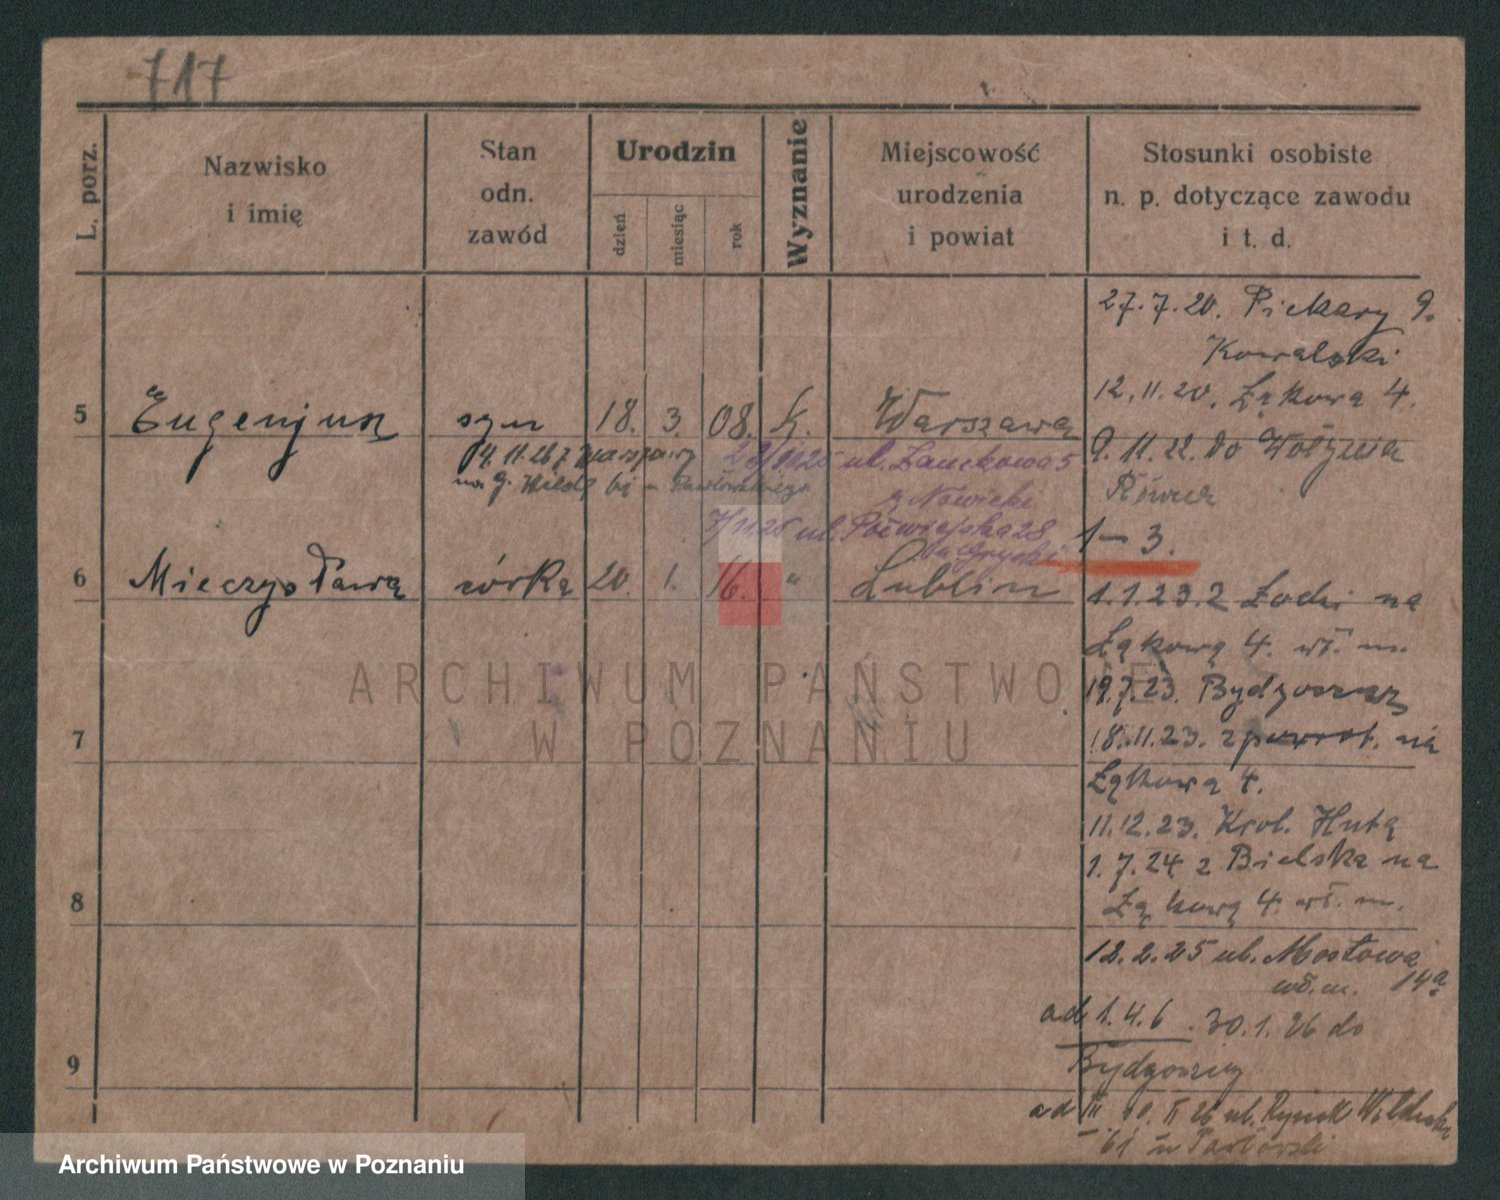 717
L. porz.
Nazwisko
i imię
Stan
odn.
zawód
Urodzin
dzień
miesiąc
rok
Wyznanie
Miejscowość
urodzenia
i powiat
Stosunki osobiste
n. p. dotyczące zawodu
i t. d.
27.7.20. Piekary 9.
Kowalski
12.11.20. Łąkowa 4.
5 Eugenjusz syn 18. 3. 08. k. Warszawa
9.11.22. do Wołynia
14.11.26 z Warszawy
ul. Łanekowa 5
na G. Wildę
Nowicki
Równe
ul. Półwiejska 28
1-3.
6 Mieczysława córka 20. 1. 16. " Lublin
1.1.23. z Łodzi na
Łąkową 4. wł. m.
19.7.23. Bydgoszcz
7
18.11.23. z powrot. na
Łąkową 4.
11.12.23. Król. Hutą
1.7.24 z Bielska na
8
Łąkową 4. wł. m.
12.2.25 ul. Mostowa
wł. m. 14a
ad 1.4.6. 30.1.26 do
9
Bydgoszczy
ad III 10. II 26 ul. Rynek Wildecki
61
ARCHIWUM PAŃSTWOWE
W POZNANIU
Archiwum Państwowe w Poznaniu